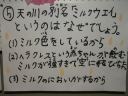 ⑤ 天の川の別名ミルクウエイ
というのはなぜでしょう。
(1) ミルク色をしているから
(2) ヘラクレスという赤ちゃんが飲む
ミルクが強すぎて空に
(3) ミルクのにおいがするから